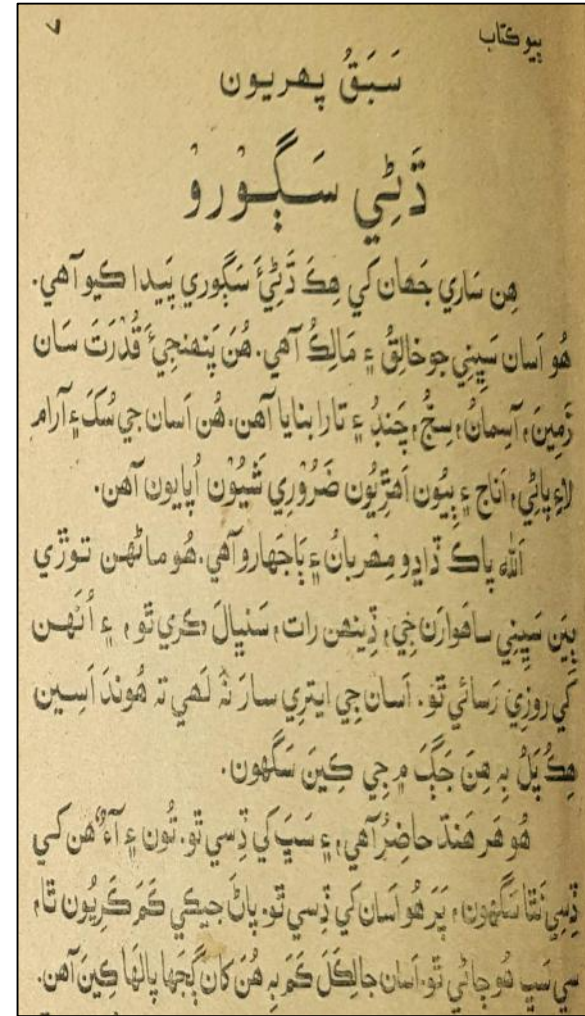 ٻيو ڪتاب ۷
سَبَقُ پهريون
ڌَڻِي سَڳورو
هِن سَاري جَهان کي هِڪَ ڌَڻِيءَ سَڳوري پَيدا ڪيو آهي.
هُو اَسان سَڀِني جو خالِقُ ۽ مَالِڪُ آهي. هُنَ پَنهنجيءَ قُدْرَتَ سَان
زَمِينَ، آسِمانُ، سِجُّ، چَنڊُ ۽ تارا بنايا آهن. هُن اَسان جي سُکَ ۽ آرام
لاءِ پاڻِي، اَناج ۽ ٻِيُون اَهڙِيُون ضَرُورِي شَيُون اُپايون آهن.
اَللّٰه پاڪ ڏاڍو مِهربانُ ۽ ٻَاجهارو آهي. هُو ماڻهن توڙي
ٻِيَن سَڀِني ساهَوارَن جِي، ڏِينهن رات، سَنڀالَ ڪري ٿو، ۽ اُنَهن
کي روزِي رَسائي ٿو. اَسان جِي ايتري سارَ نَہ لَهي تہ هُوندَ اَسِين
هِڪُ پَلُ بہ هِنَ جَڳَ ۾ جِي ڪِينَ سَگهون.
هُو هَر هَنڌ حاضِرُ آهي، ۽ سَڀَ کي ڏِسي ٿو. تُون ۽ آءٌ هُن کي
ڏِسِي نَٿا سَگهون، پَرَ هُو اَسان کي ڏِسي ٿو. پاڻَ جيڪي ڪَمَ ڪَرِيُون ٿا،
سي سڀ هُو ڄاڻي ٿو. اَسان جا لِڪَلَ ڪَمَ بہ هُنَ کان ڳُجَها پالها ڪِينَ آهن.